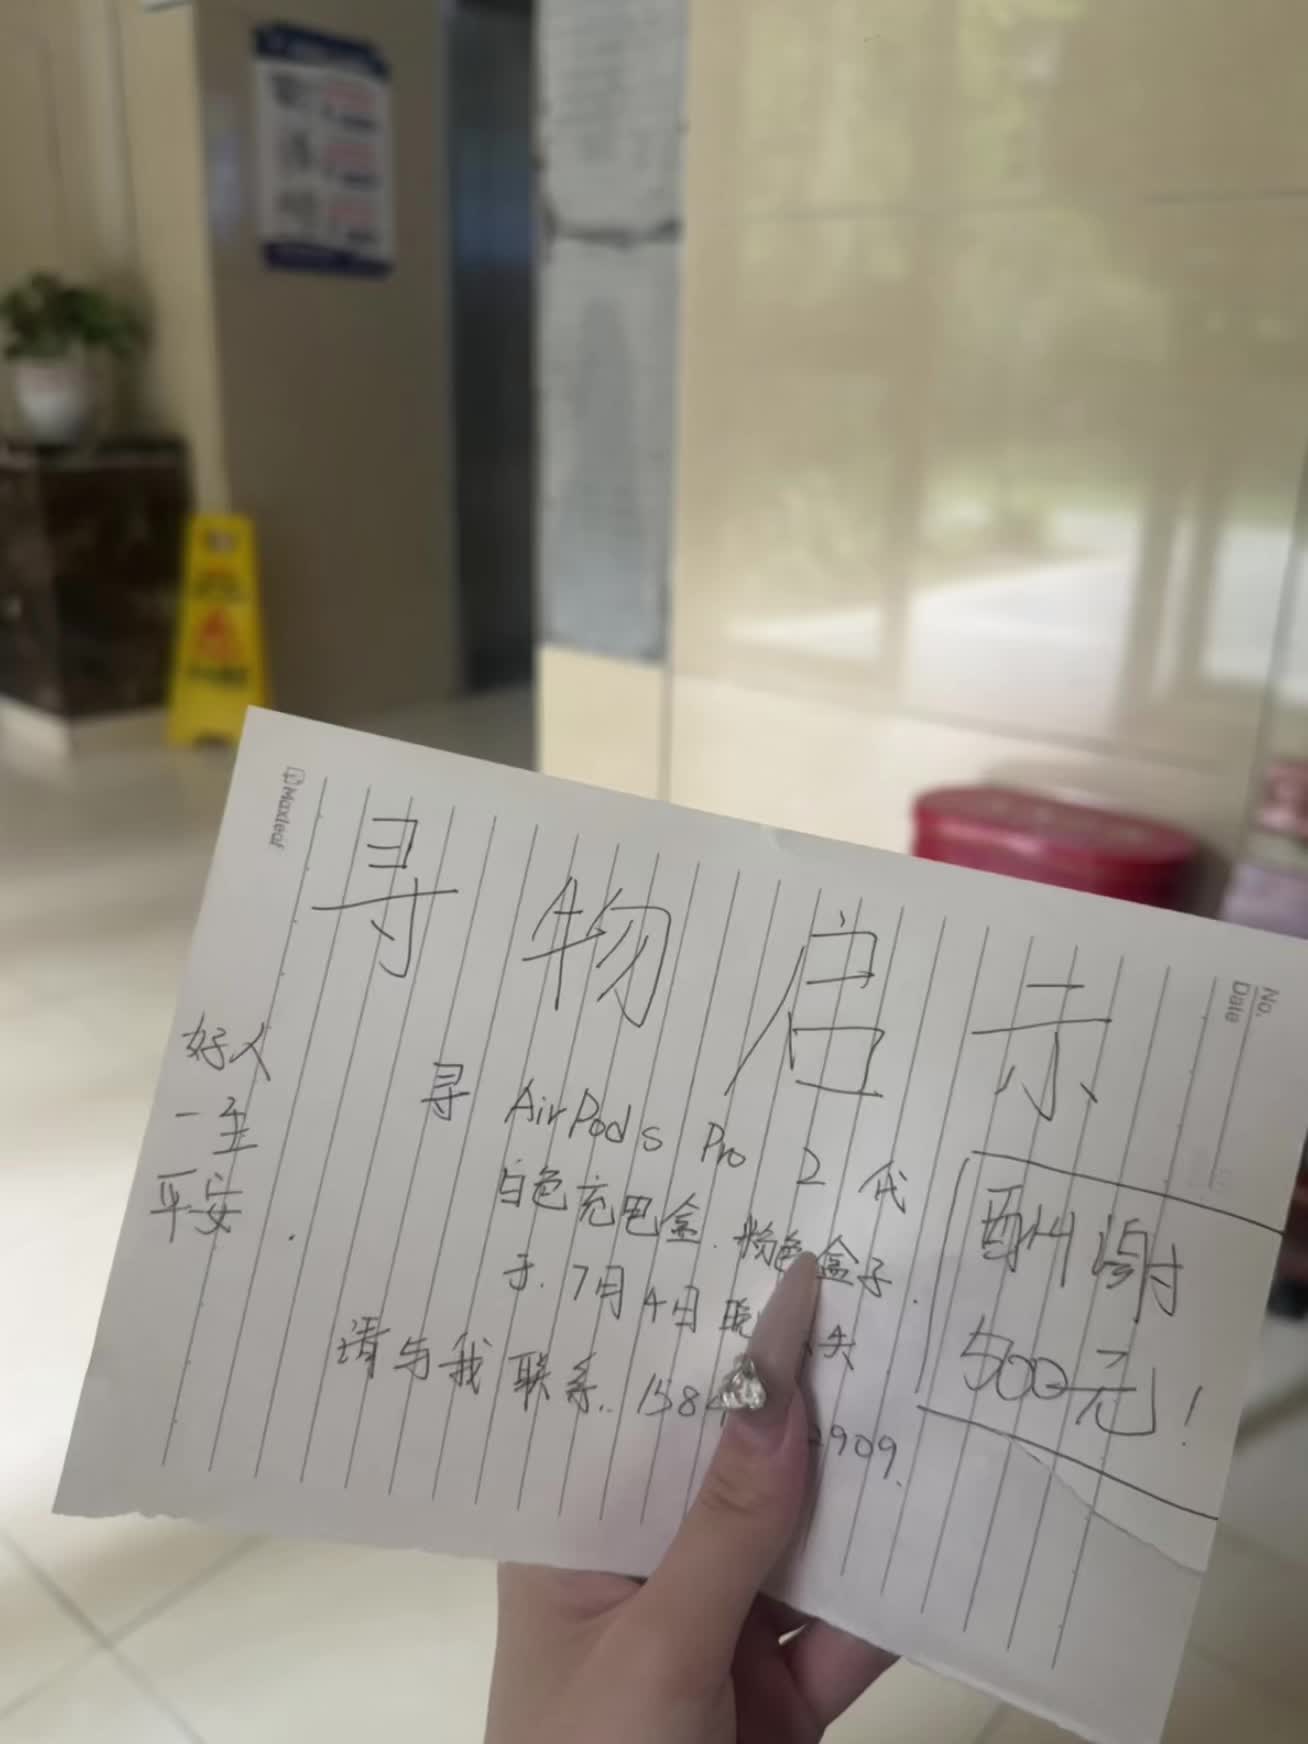 Maxleaf
No.
Date
寻物启示
寻 AirPods Pro 2代
白色充电盒.粉色盒子.
于.7月4日晚 失
请与我联系..158 2909.
好人
一生
平安.
酬谢
500元!